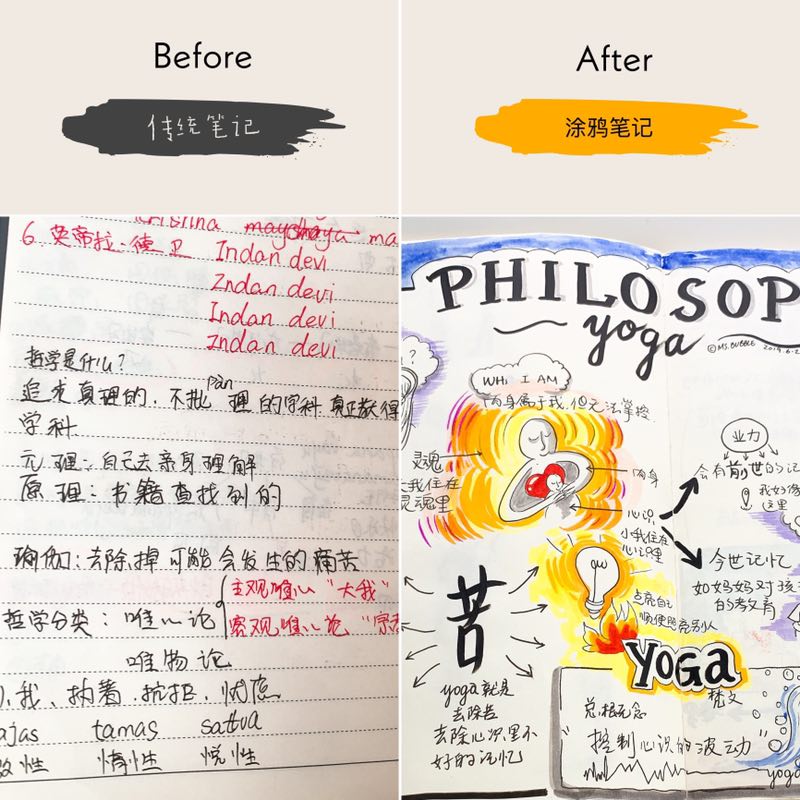 Before
传统笔记
After
涂鸦笔记
6. 英帝拉·德卫 Indan devi
Indan devi
Indan devi
Indan devi
哲学是什么?
追求真理的,不批 pàn 理的学科 真正获得
学科
元理:自己去亲身理解
原理:书籍查找到的
瑜伽:去除掉可能会发生的痛苦
哲学分类:唯心论
主观唯心 "大我"
客观唯心论
唯物论
我、执着、抗拒、忧虑
ajas tamas sattva
性 惰性 悦性
PHILOSOP
yoga
© MS. BUBBLE 2019.6.2
WHO I AM
肉身属于我,但无法掌控
灵魂
大我住在
灵魂里
肉身
心识
小我住在
心识里
业力
会有前世的记
我好像
这里
今世记忆
如妈妈对孩
的教育
苦
点亮自己
顺便照亮别人
YOGA
梵文
yoga就是
去除苦
去除心识里不
好的记忆
总根元念
"控制心识的波动"
yoga